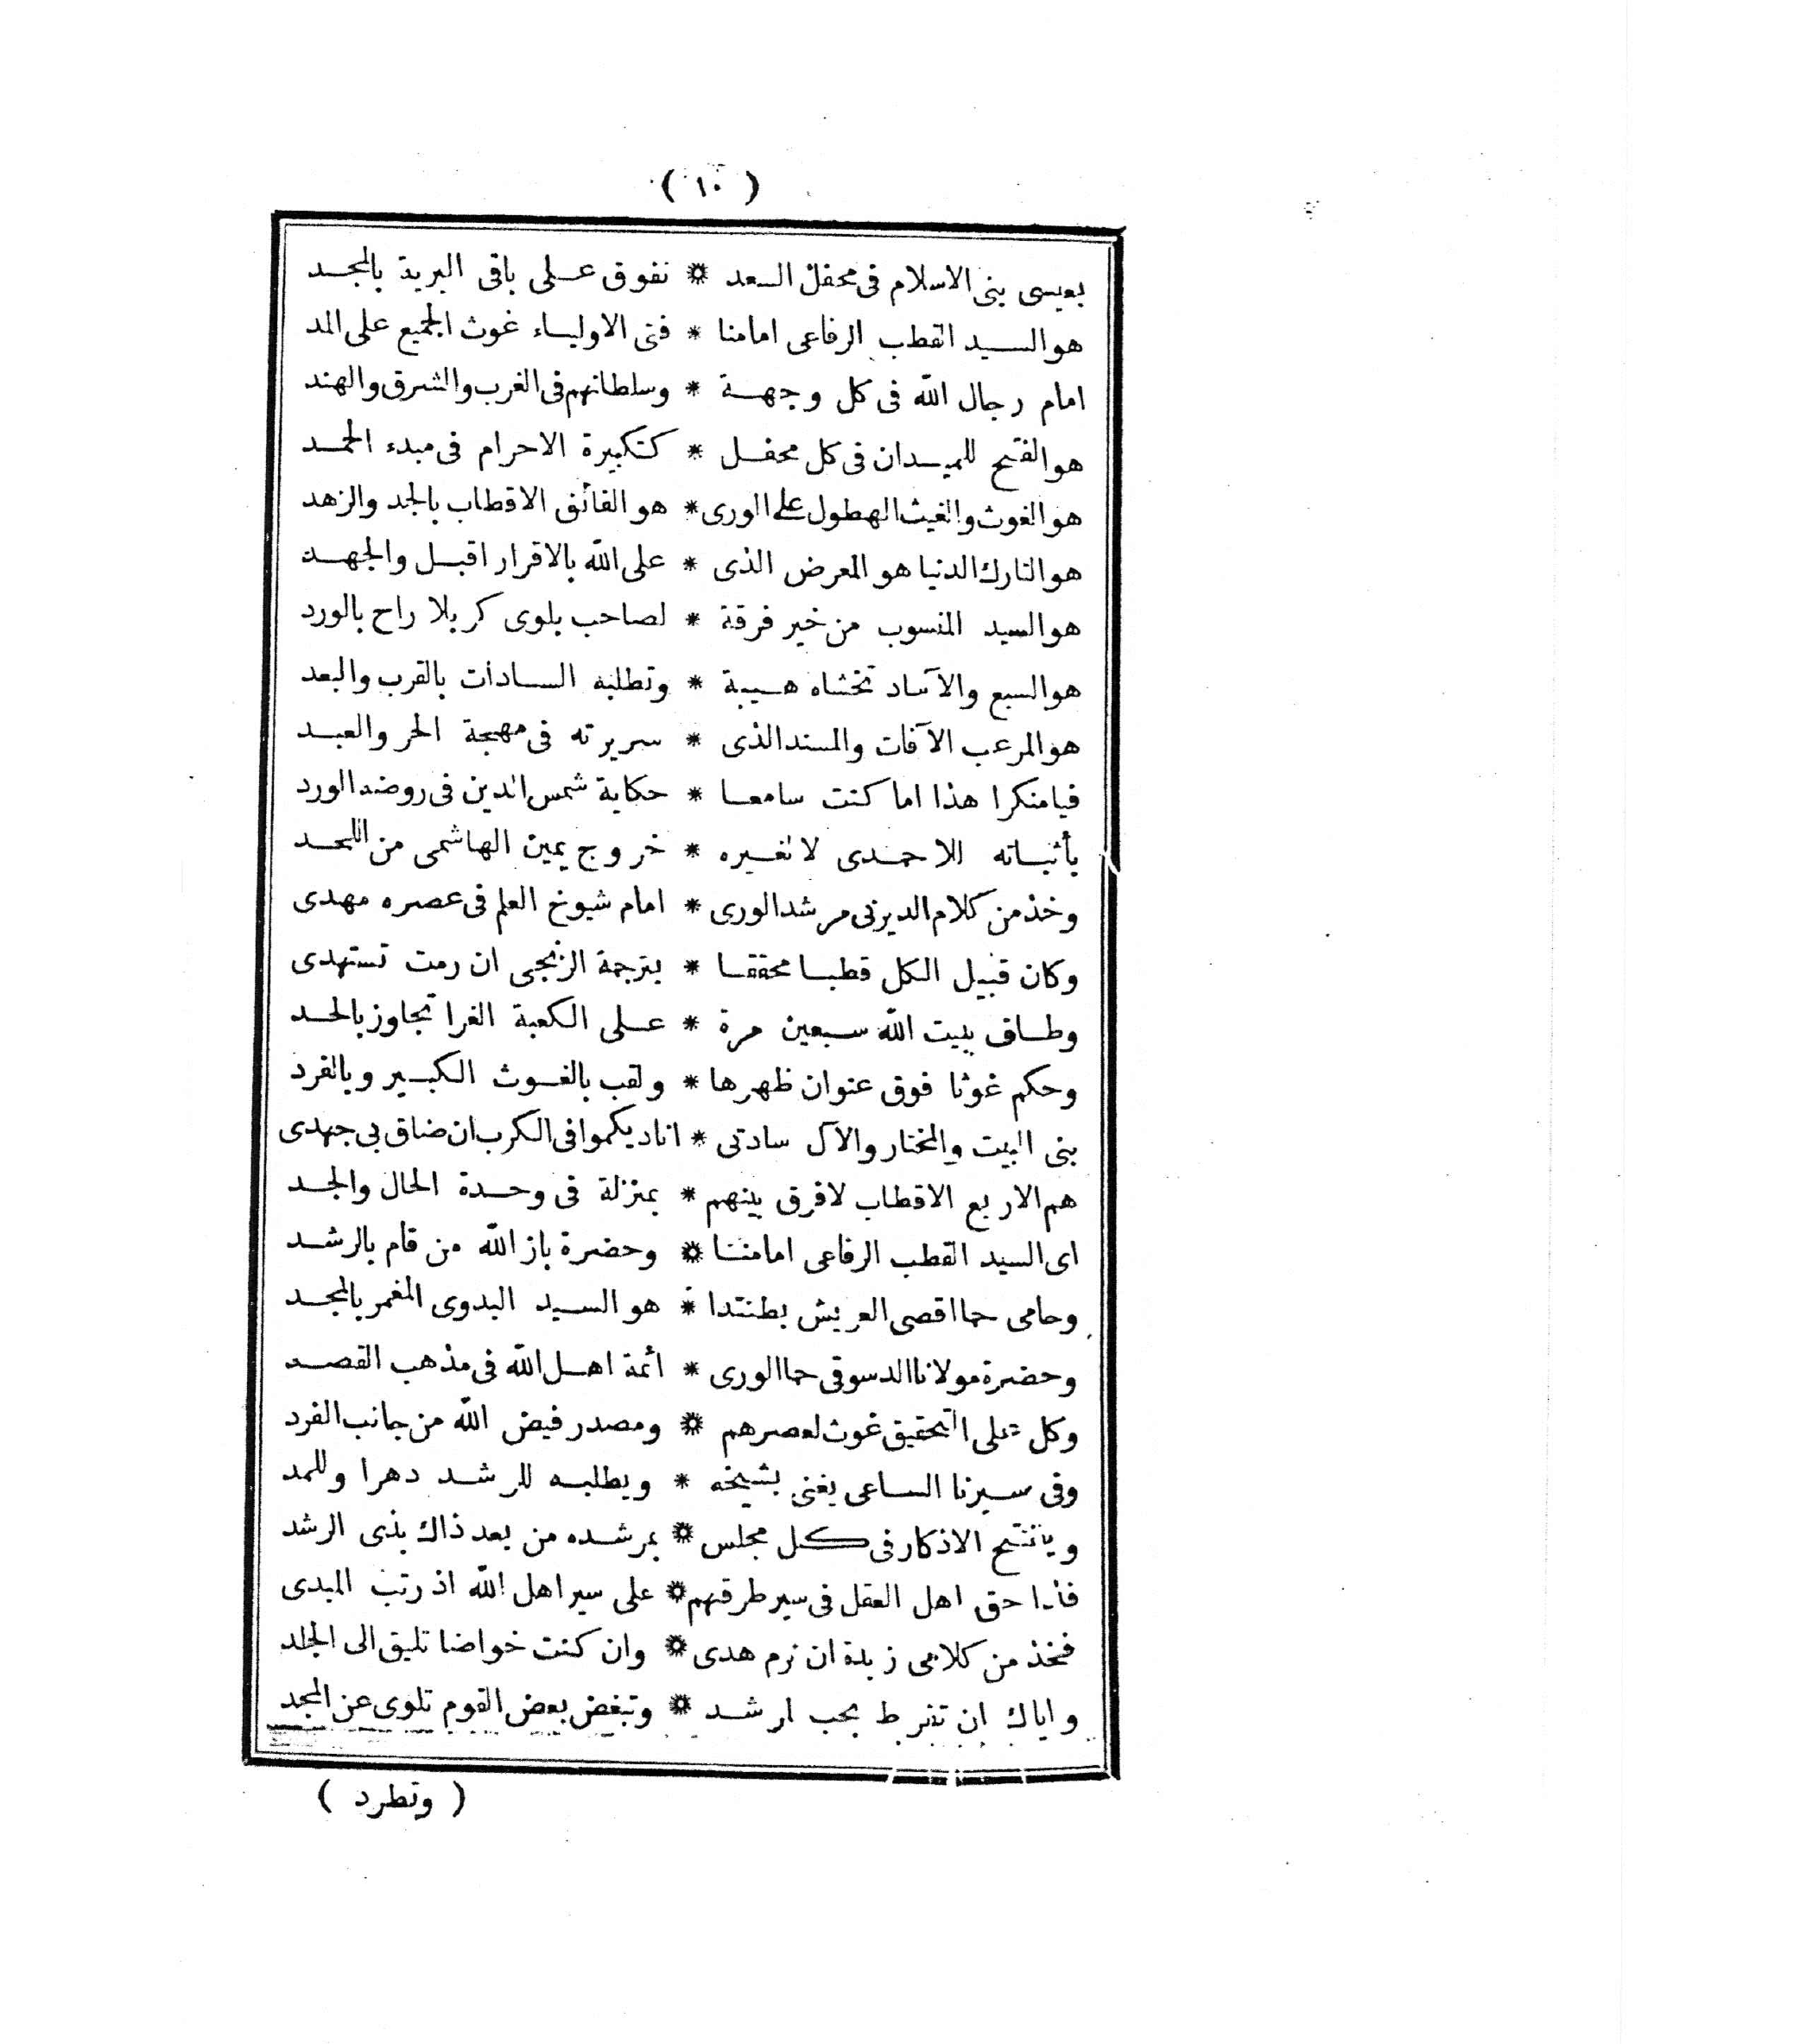 ( ١٠ )
بعيسى بنى الاسلام فى محفل السعد * نفوق على باقى البرية بالمجد
هو السيد القطب الرفاعى امامنا * فتى الاولياء غوث الجميع على المد
امام رجال الله فى كل وجهة * وسلطانهم فى الغرب والشرق والهند
هو الفتح للميدان فى كل محفل * كتكبيرة الاحرام فى مبدء الحمد
هو الغوث والغيث الهطول على الورى * هو الفائق الاقطاب بالجد والزهد
هو التارك الدنيا هو المعرض الذى * على الله بالاقرار اقبل والجهد
هو السيد المنسوب من خير فرقة * لصاحب بلوى كربلا راح بالورد
هو السبع والآساد تخشاه هيبة * وتطلبه السادات بالقرب والبعد
هو المرعب الآفات والسند الذى * سريرته فى مهجة الحر والعبد
فيا منكرا هذا اما كنت سامعا * حكاية شمس الدين فى روضة الورد
بأثباته للاحمدى لا لغيره * خروج يمين الهاشمى من اللحد
وخذ من كلام الديرنى مرشد الورى * امام شيوخ العلم فى عصره مهدى
وكان قبيل الكل قطبا محققا * بترجمة الزنجى ان رمت تستهدى
وطاف ببيت الله سبعين مرة * على الكعبة الغرا تجاوز بالحد
وحكم غوثا فوق عنوان ظهرها * ولقب بالغوث الكبير وبالفرد
بنى البيت والمختار والآل سادتى * اناديكموا فى الكرب ان ضاق بى جهدى
هم الاربع الاقطاب لا فرق بينهم * بمنزلة فى وحدة الحال والجد
اى السيد القطب الرفاعى امامنا * وحضرة باز الله من قام بالرشد
وحامى حما اقصى العريش بطنتدا * هو السيد البدوى المغمر بالمجد
وحضرة مولانا الدسوقى حما الورى * أئمة اهل الله فى مذهب القصد
وكل على التحقيق غوث لعصرهم * ومصدر فيض الله من جانب الفرد
وفى سيرنا الساعى يغنى بشيخه * ويطلبه للرشد دهرا وللمد
ويفتتح الاذكار فى كل مجلس * بمرشده من بعد ذاك بذى الرشد
فذا حق اهل العقل فى سير طرقهم * على سير اهل الله اذ رتب المبدى
فخذ من كلامى زبدة ان ترم هدى * وان كنت خواضا تليق الى الجلد
واياك ان تفرط بحب لمرشد * وتبغض بعض القوم تلوى عن المجد
( وتطرد )